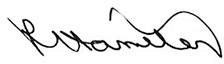 R Hamilton